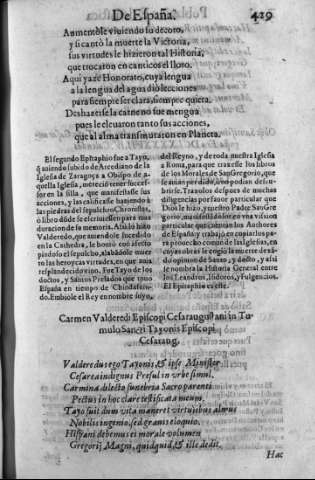 De España. 429
Aumentòle viuiendo su decoro,
y si cantò la muerte la Victoria,
sus virtudes le hizieron tal Historia,
que trocaron en canticos el lloro.
Aqui yaze Honorato, cuya lengua
a la lengua del agua diò lecciones
para siempre ser clara, siempre quieta.
Deshazerse la carne no fue mengua
pues le eleuaron tanto sus acciones,
que al alma transmutaron en Planeta.
El segundo Epitaphio fue a Tayo,
q̃ auiendo subido de Arcediano de la
Iglesia de Zaragoça a Obispo de a-
quella Iglesia, mereciò tener succes-
sor en la silla, que manifestasse sus
acciones, y las calificasse haziendo à
las piedras del sepulchro Chronistas,
o libro dõde se escriuiessen para mas
duracion de la memoria. Atilò lo hizo
Valderedo, que auiendole succedido
en la Cathedra, le honrò con afecto
piadoso el sepulchro, alabãdole muer
to las heroycas virtudes, en que auia
resplandecido viuo. Fue Tayo de los
doctos, y Santos Prelados que tuuo
España en tiempo de Chindasuin-
do. Embiole el Rey en nombre suyo,
del Reyno, y de toda nuestra Iglesia
a Roma, para que traxesse los libros
de los Morales de San Gregorio, que
se auian perdido, ò no podian descu-
brirse. Traxolos despues de muchas
diligencias por fauor particular que
Dios le hizo, y nuestro Padre San Gre
gorio, manifestãdose en vna vision
particular que admiran los Authores
de España y trabajò en copiarlos pa-
ra prouecho comun de las Iglesias, en
cuyas obras se cogiò la muerte dexã-
do opinion de Santo, y docto, y assi
se nombra la Historia General entre
los Leandros, Isidoros, y Fulgencios.
El Epitaphio es este.
Carmen Valderedi Episcopi Cesaraugustani in Tu-
mulo Sancti Tayonis Episcopi
Cesaraug.
Valderedus ego Tayonis, & ipse Minister
Cesarea indignus Presul in vrbe simul,
Carmina dilecto funebria Sacro parenti
Pectus in hoc clare testificata meum.
Tayo fuit dum vita maneret virtutibus almus
Nobilis ingenio, sed grauis eloquio.
Hispani debemus ei morale volumen
Gregorij Magni, quidquid, & ille dedit.
Hac